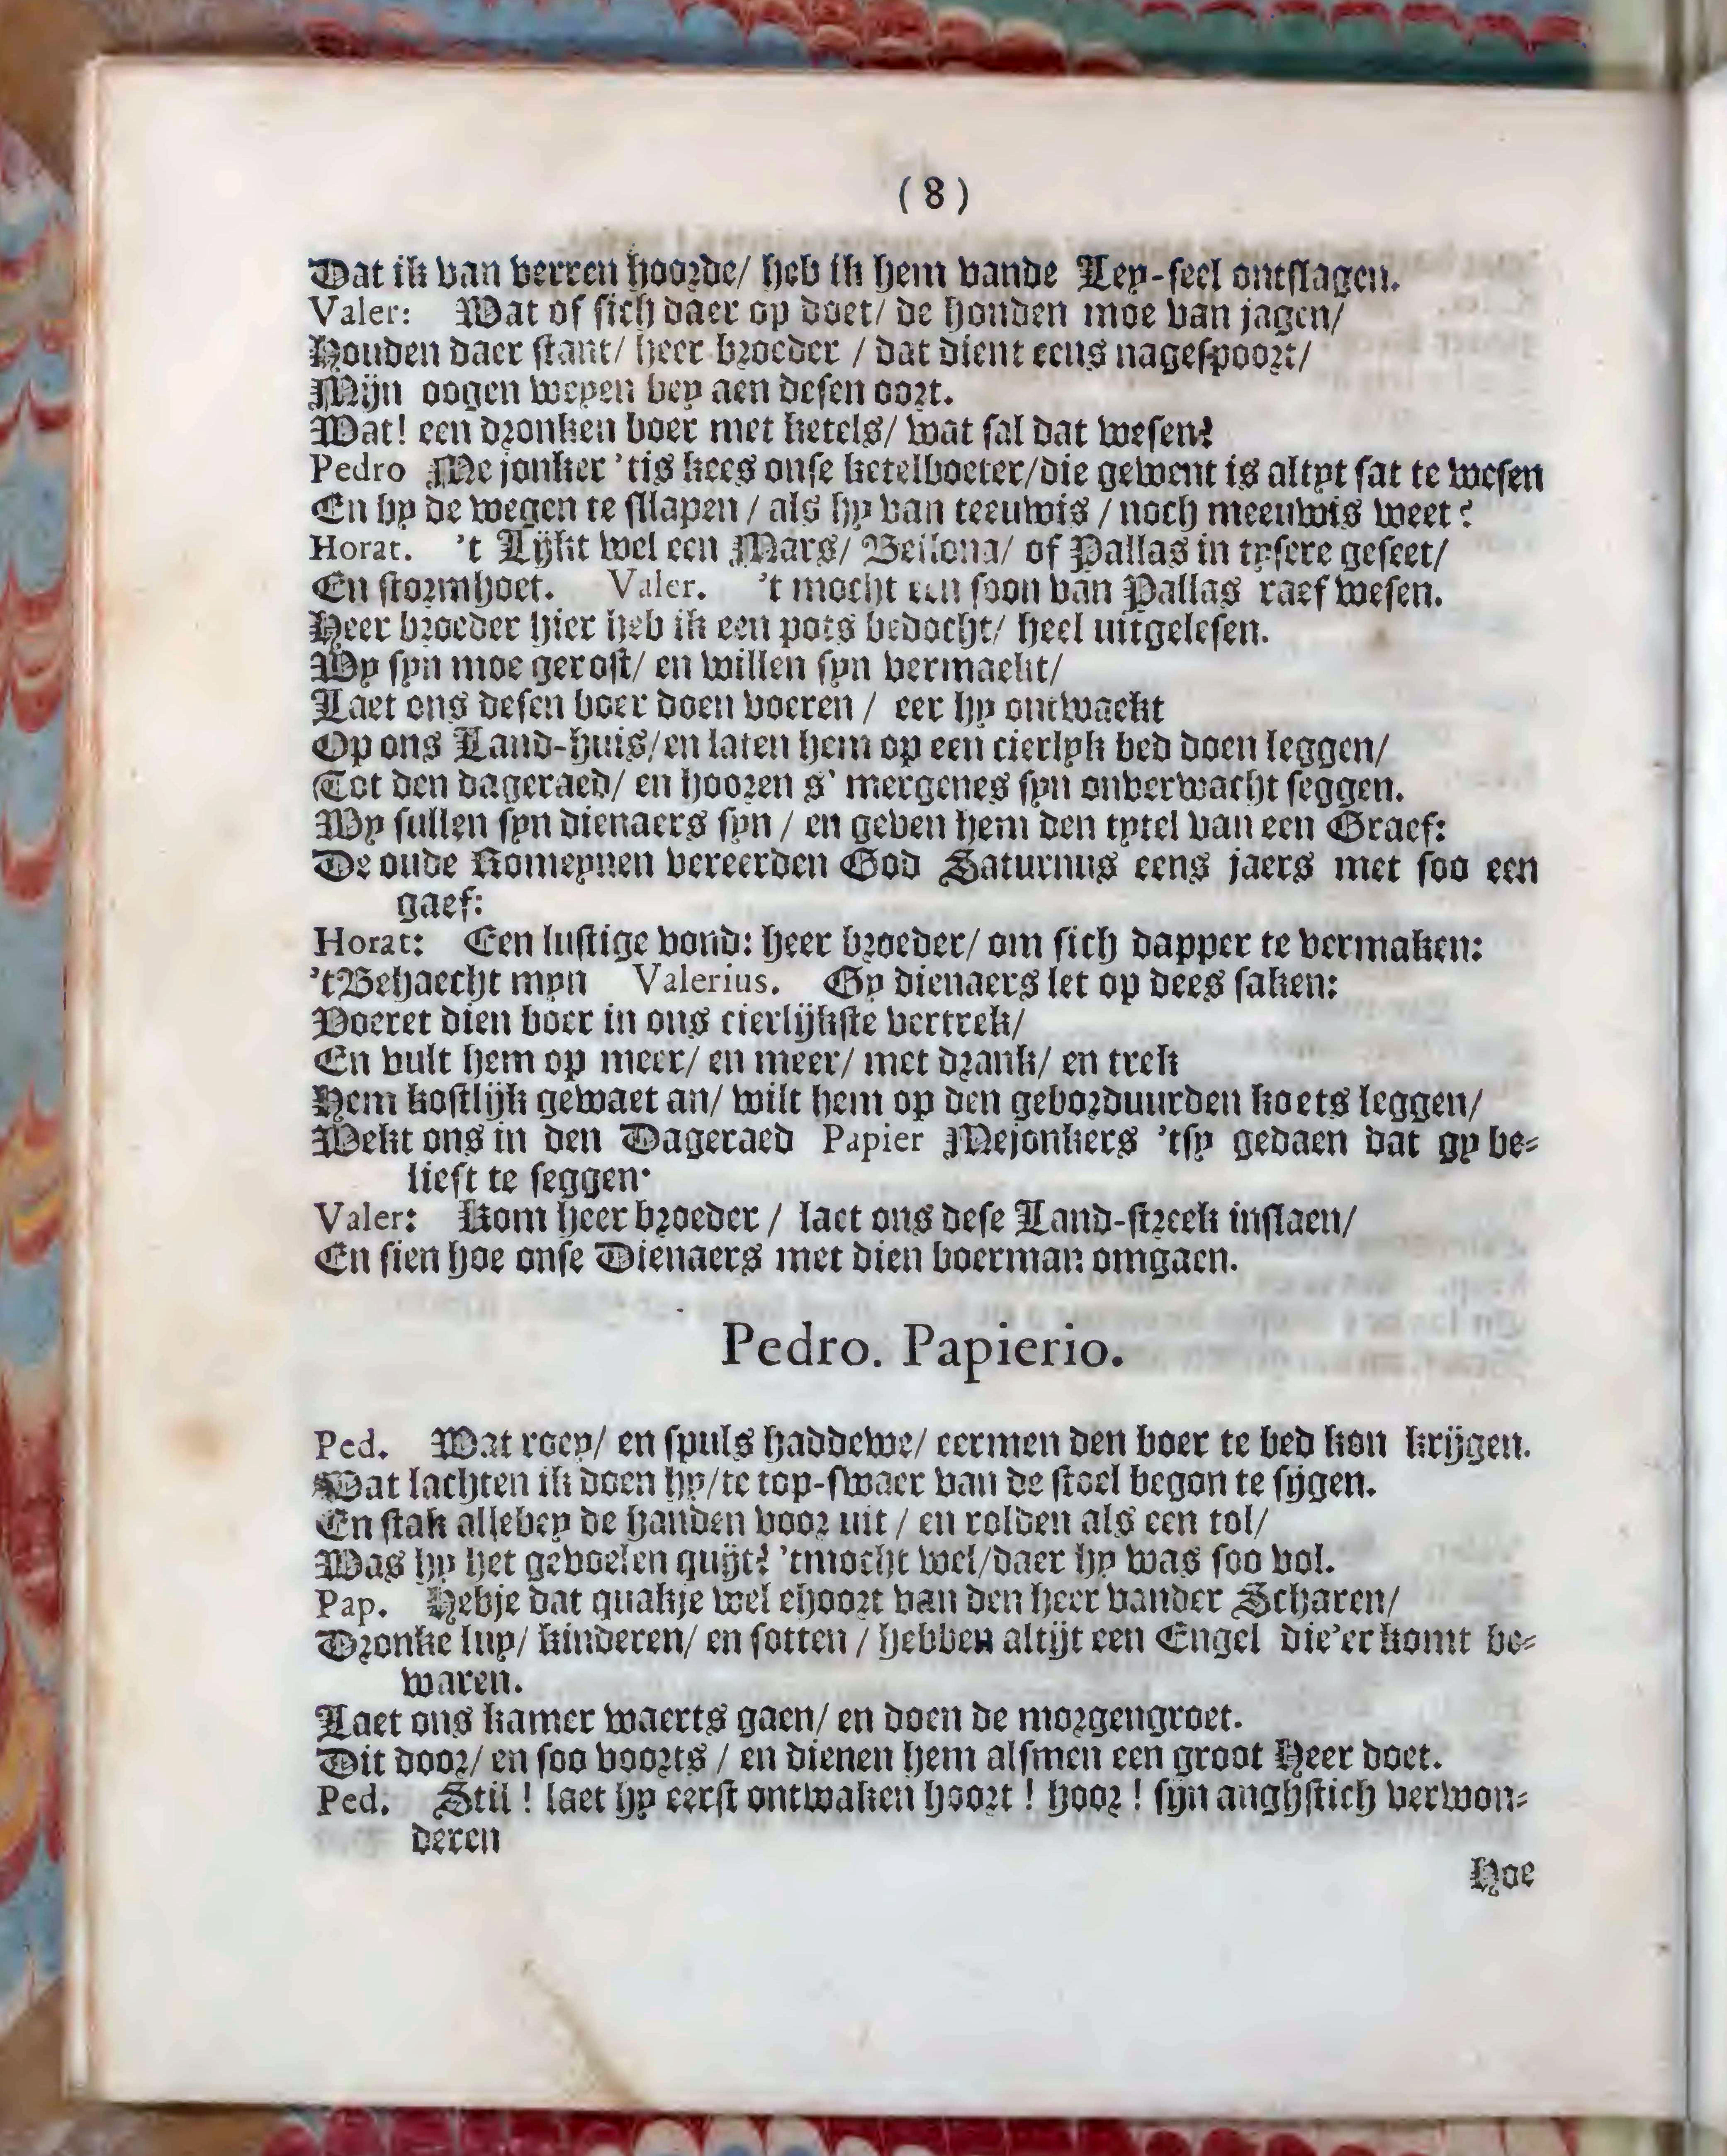 (8)
Dat ik van verren hoorde/ heb ik hem vande Ley-seel ontslagen.
Valer: Wat of sich daer op doet/ de honden moe van jagen/
Houden daer stant/ heer broeder / dat dient eens nagespoort/
Mijn oogen weyen bey aen desen oort.
Wat! een dronken boer met ketels/ wat sal dat wesen?
Pedro Me jonker 'tis kees onse ketelboeter/die gewent is altyt sat te wesen
En by de wegen te sllapen / als hy van teeuwis / noch meeuwis weet?
Horat. 't Lijkt wel een Mars/ Bellona/ of Pallas in tysere geseet/
En stormhoet. Valer. 't mocht een soon van Pallas raef wesen.
Heer broeder hier heb ik een pots bedocht/ heel uitgelesen.
Wy syn moe gerost/ en willen syn vermaekt/
Laet ons desen boer doen voeren / eer hy ontwaekt
Op ons Land-huis/en laten hem op een cierlyk bed doen leggen/
Tot den dageraed/ en hooren s' mergenes syn onverwacht seggen.
Wy sullen syn dienaers syn / en geven hem den tytel van een Graef:
De oude Romeynen vereerden God Saturnus eens jaers met soo een
gaef:
Horat: Een lustige vond: heer broeder/ om sich dapper te vermaken:
'tBehaecht myn Valerius. Gy dienaers let op dees saken:
Voeret dien boer in ons cierlijkste vertrek/
En vult hem op meer/ en meer/ met drank/ en trek
Hem kostlijk gewaet an/ wilt hem op den geborduurden koets leggen/
Wekt ons in den Dageraed Papier Mejonkers 'tsy gedaen dat gy be-
lieft te seggen.
Valer: Kom heer broeder / laet ons dese Land-streek inslaen/
En sien hoe onse Dienaers met dien boerman omgaen.
Pedro. Papierio.
Ped. Wat roey/ en spuls haddewe/ eermen den boer te bed kon krijgen.
Wat lachten ik doen hy/te top-swaer van de stoel begon te sijgen.
En stak allebey de handen voor uit / en rolden als een tol/
Was hy het gevoelen quijt? 'tmocht wel/daer hy was soo vol.
Pap. Hebje dat quakje wel ehoort van den heer vander Scharen/
Dronke luy/ kinderen/ en sotten / hebben altijt een Engel die'er komt be-
waren.
Laet ons kamer waerts gaen/ en doen de morgengroet.
Dit door/ en soo voorts / en dienen hem alsmen een groot Heer doet.
Ped. Stil ! laet hy eerst ontwaken hoort ! hoor ! sijn anghstich verwon-
deren
Hoe